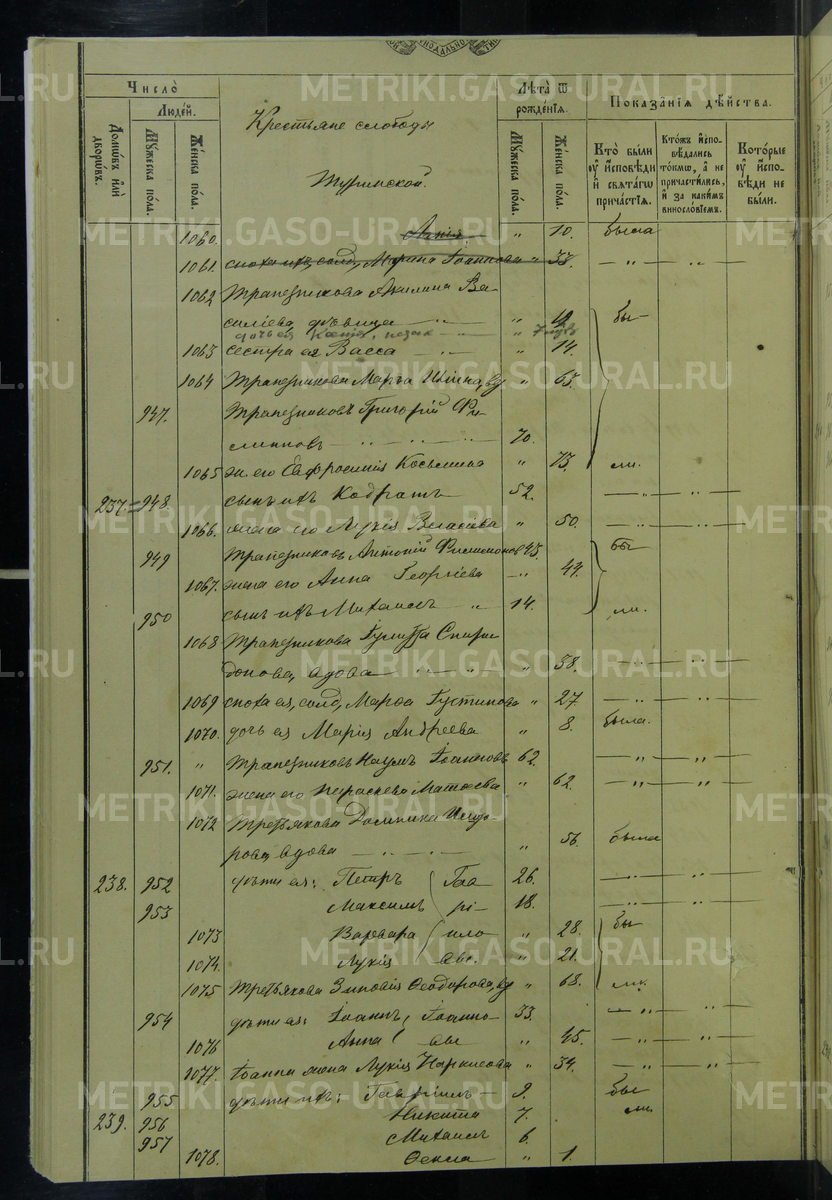 Число̀
Людeй.
Домѡвъ илѝ дворѡвъ.
Мꙋжеска пола.
Женска пола.
Крестьяне слободы
Туринской.
Лѣта̀ ѿ рожденїѧ.
Мꙋжеска пола.
Женска пола.
Показанїѧ дѣйства.
Кто̀ были ᲂу҆ и҆споведи и҆ свѧтагѡ причастїѧ.
Ктожъ и҆споведались токмѡ, а҆ не причастились, и҆ за какимъ винословїемъ.
Которые ᲂу҆ и҆споведи не были.
1060. Анна " 10. была
1061. сноха ихъ, солд. Марина Іоаннова " 33. — " —
1062 Трапезникова Акилина Ва-
силіева, дѣвица " 19. бы-
дочь ея Ксенія, незак "
1063 сестра ея Васса " 14.
1064 Трапезникова Марѳа вд " 65.
947. Трапезниковъ Григорій Фи-
липповъ 70.
1065 ж. его Евфросинія Косьмина " 73. ли.
237. 948. сынъ ихъ Кодратъ 52. — " —
1066. жена его Лукія Власіева " 50. — " —
949 Трапезниковъ Антоній Филимонов 45. бы
1067. жена его Анна Георгіева 44.
950 сынъ ихъ Михаилъ " 14. ли.
1068 Трапезникова Іулитта Спири-
донова, вдова " 58. — " —
1069 сноха ея, солд. Марѳа Іустинова " 27 — " —
1070. дочь ея Марія Андреева " 8. была.
951. " Трапезниковъ Наумъ Іоанновъ 62. — " —
1071. жена его Параскева Матѳеева " 62. — " —
1072 Третьякова Домника Исидо-
рова, вдова " 56. была
238. 952 дѣти ея: Петръ Гав 26. — " —
953 Максимъ рі- 18. — " —
1073 Варвара ило " 28. бы
1074. Лукія вы. " 21.
1075 Третьякова Зиновія Ѳеодорова, вд " 68. ли.
954 дѣти ея: Іоаннъ Іоанно 33. — " —
1076 Анна вы " 45. — " —
1077. Іоанна жена Лукія Наркисова " 34. — " —
955 дѣти ихъ: Гавріилъ 9. бы
239. 956 Никита 7. ли.
957 Михаилъ 6.
1078. Ѳекла " 1.
METRIKI.GASO-URAL.RU